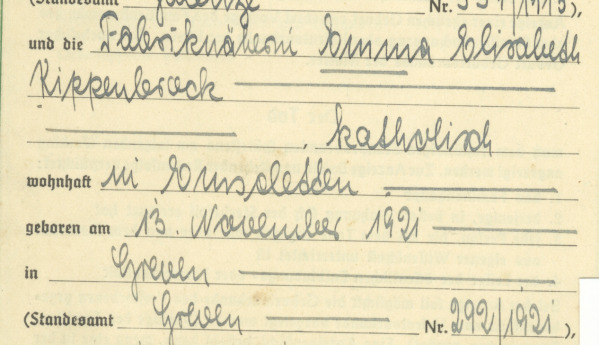 (Standesamt Nr. 551/1915),
und die Fabriknäherin Emma Elisabeth
Kippenbrock
, katholisch
wohnhaft in Emsdetten
geboren am 13. November 1921
in Greven
(Standesamt Greven Nr. 292/1921),